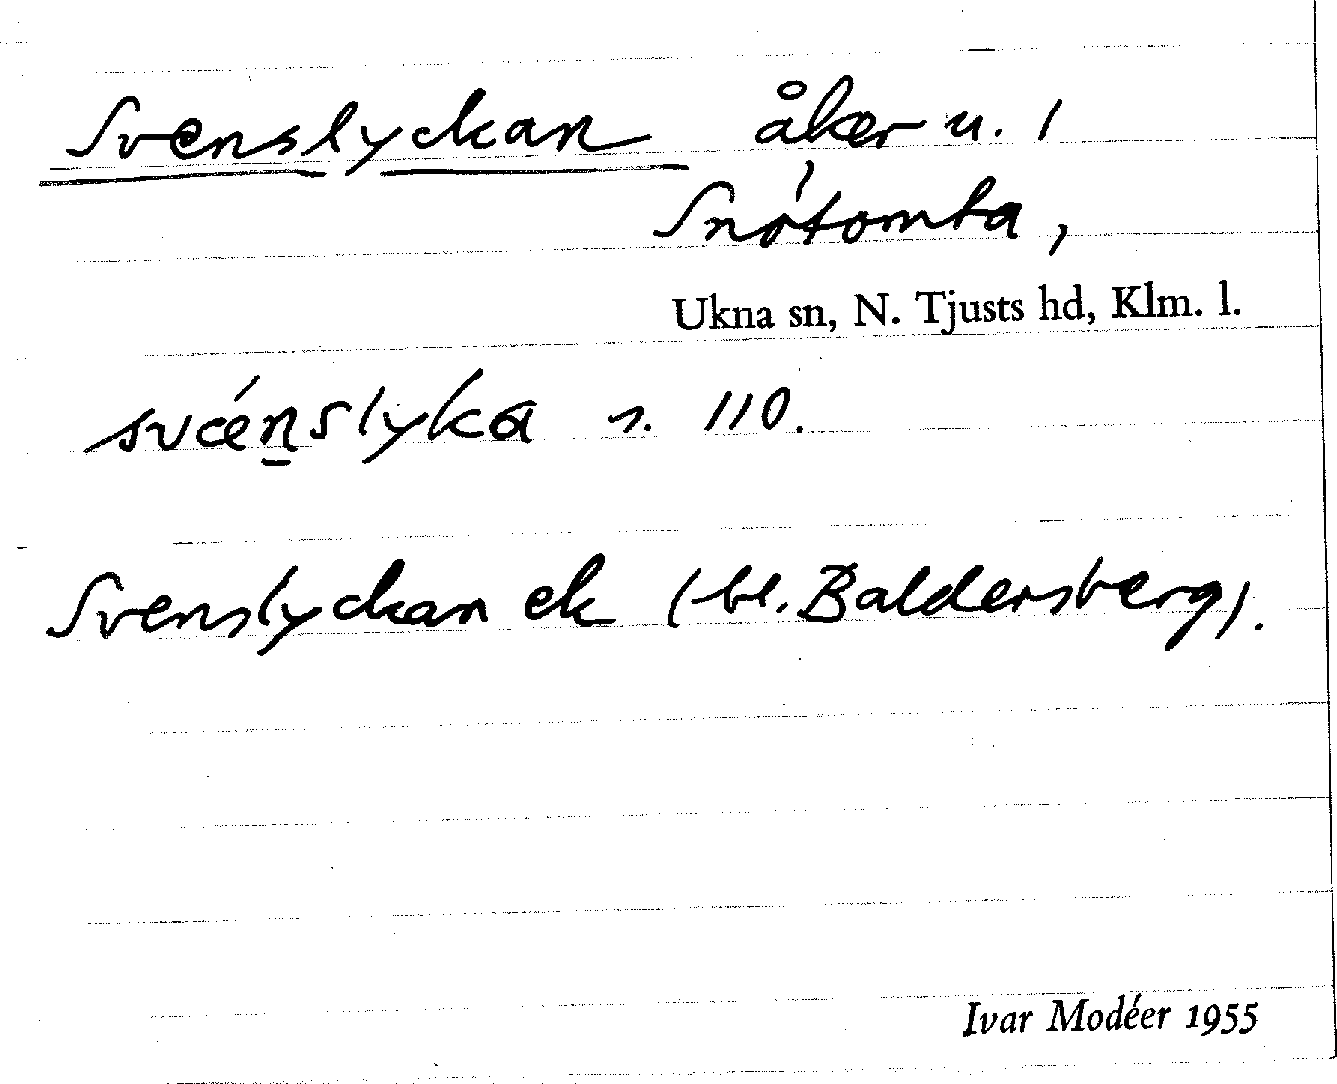 Svenslyckan åker u. 1
Snótomta,
Ukna sn, N. Tjusts hd, Klm. l.
svénslyka s. 110.
Svenslyckan ek (bl. Baldersberg).
Ivar Modéer 1955